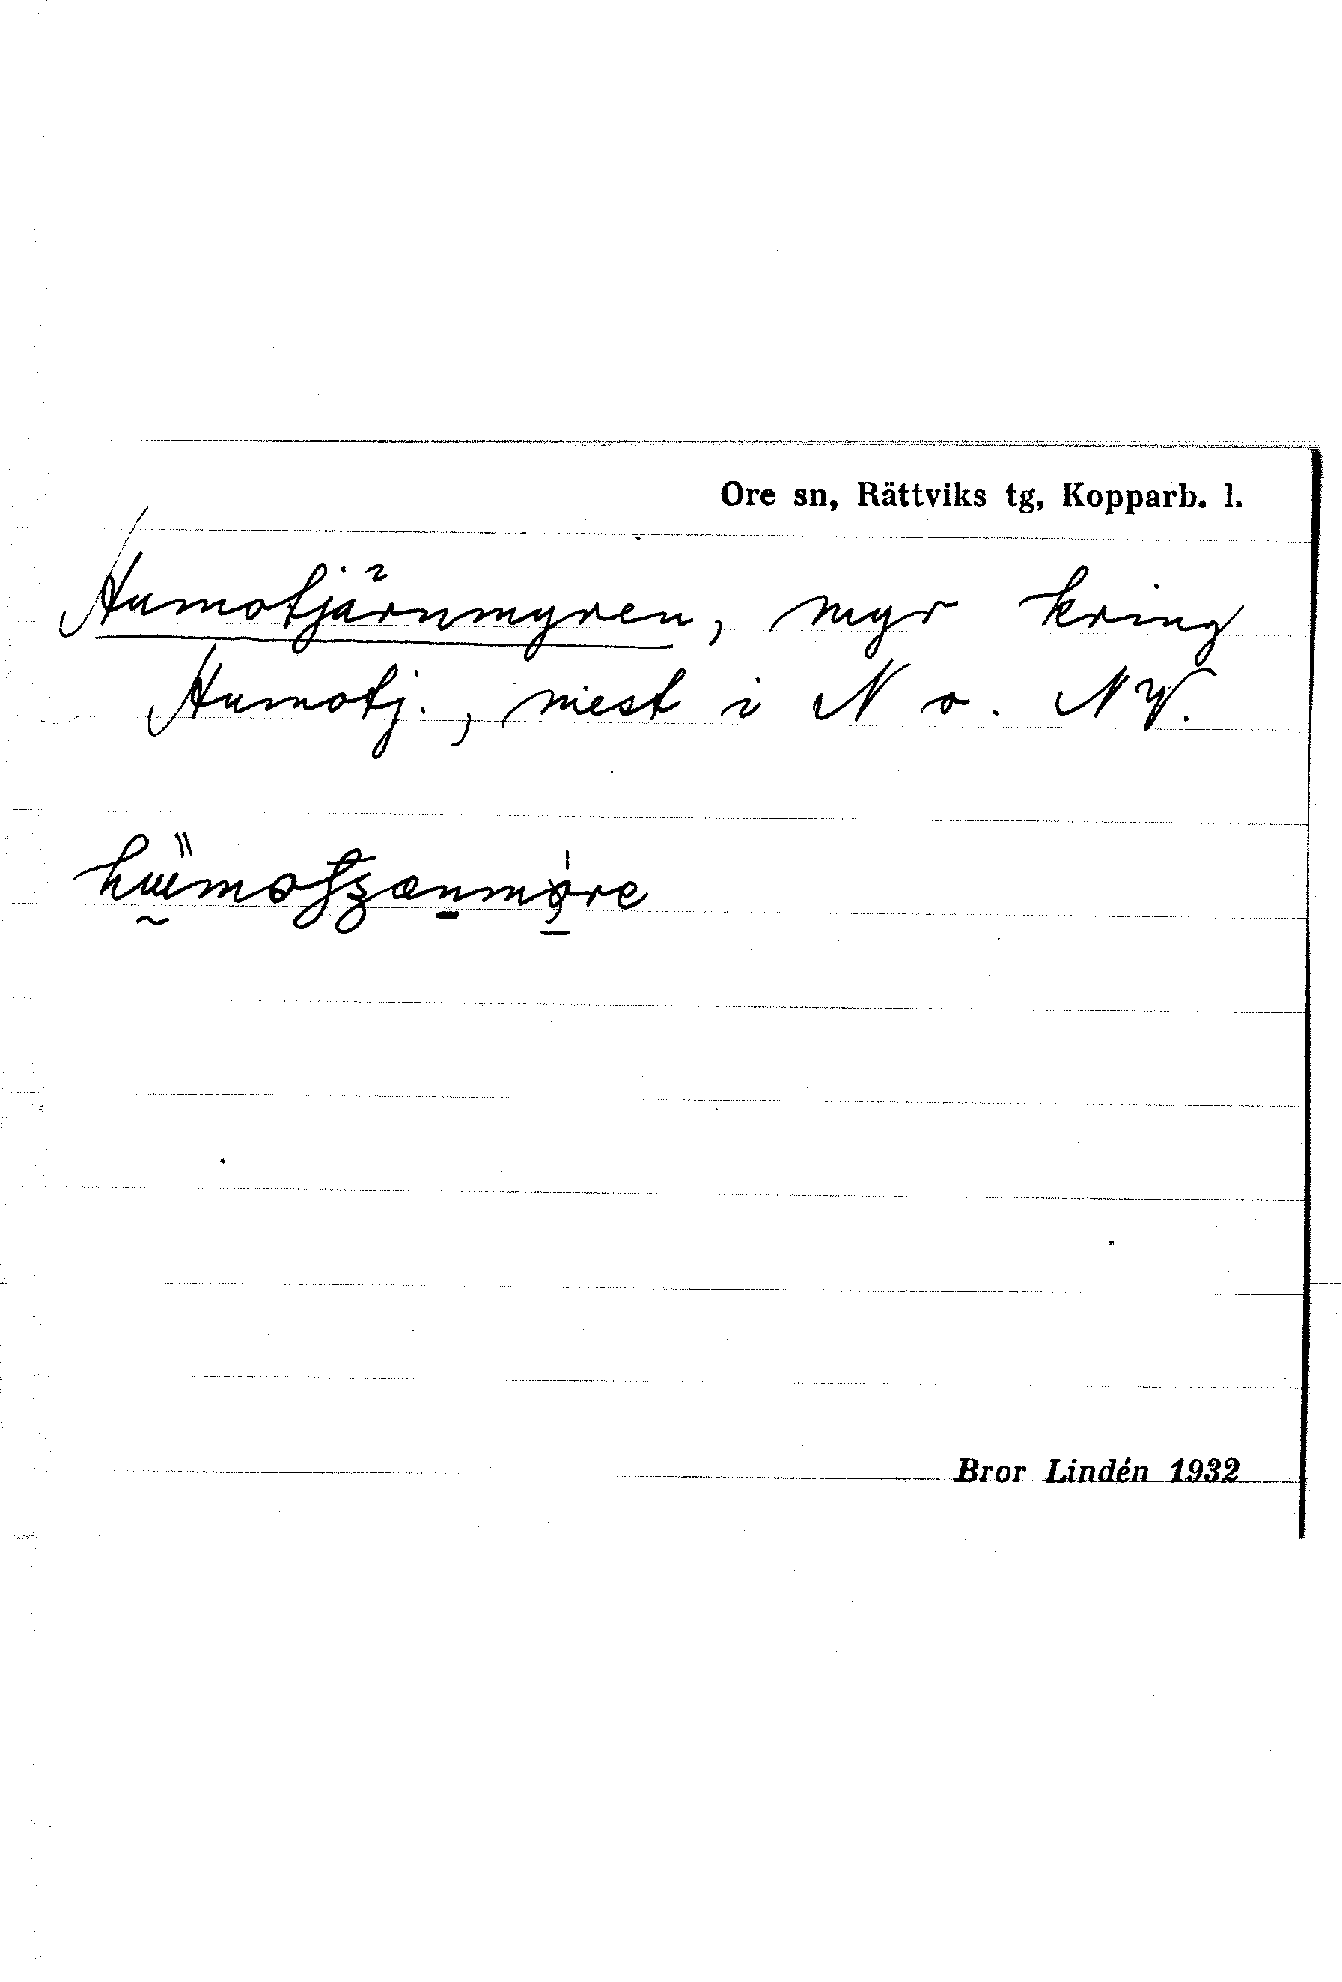 Ore sn, Rättviks tg, Kopparb. l.
Humotjärnmyren, myr kring
Humotj., mest i N o. NV.
Bror Lindén 1932